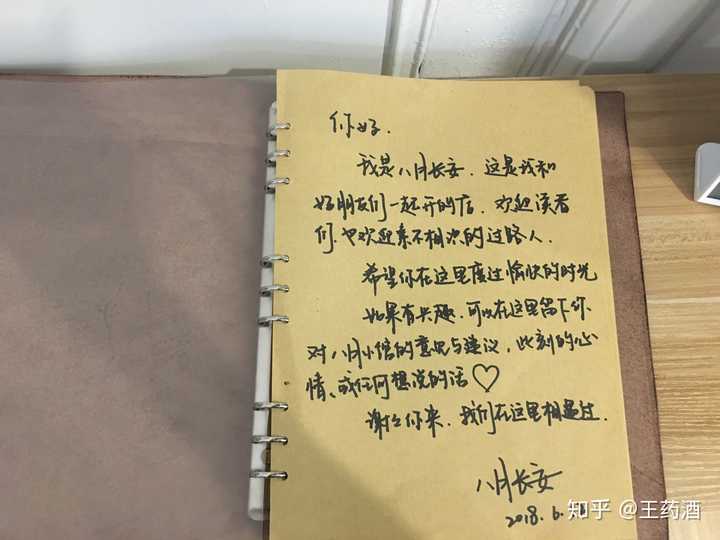 你好.
我是八月长安. 这是我和
好朋友们一起开的店. 欢迎读者
们. 也欢迎素不相识的过路人.
希望你在这里度过愉快的时光
如果有兴趣, 可以在这里留下你
对八月小馆的意见与建议, 此刻的心
情、或任何想说的话♡
谢谢你来. 我们在这里相遇过.
八月长安
2018. 6.
知乎 @王药酒